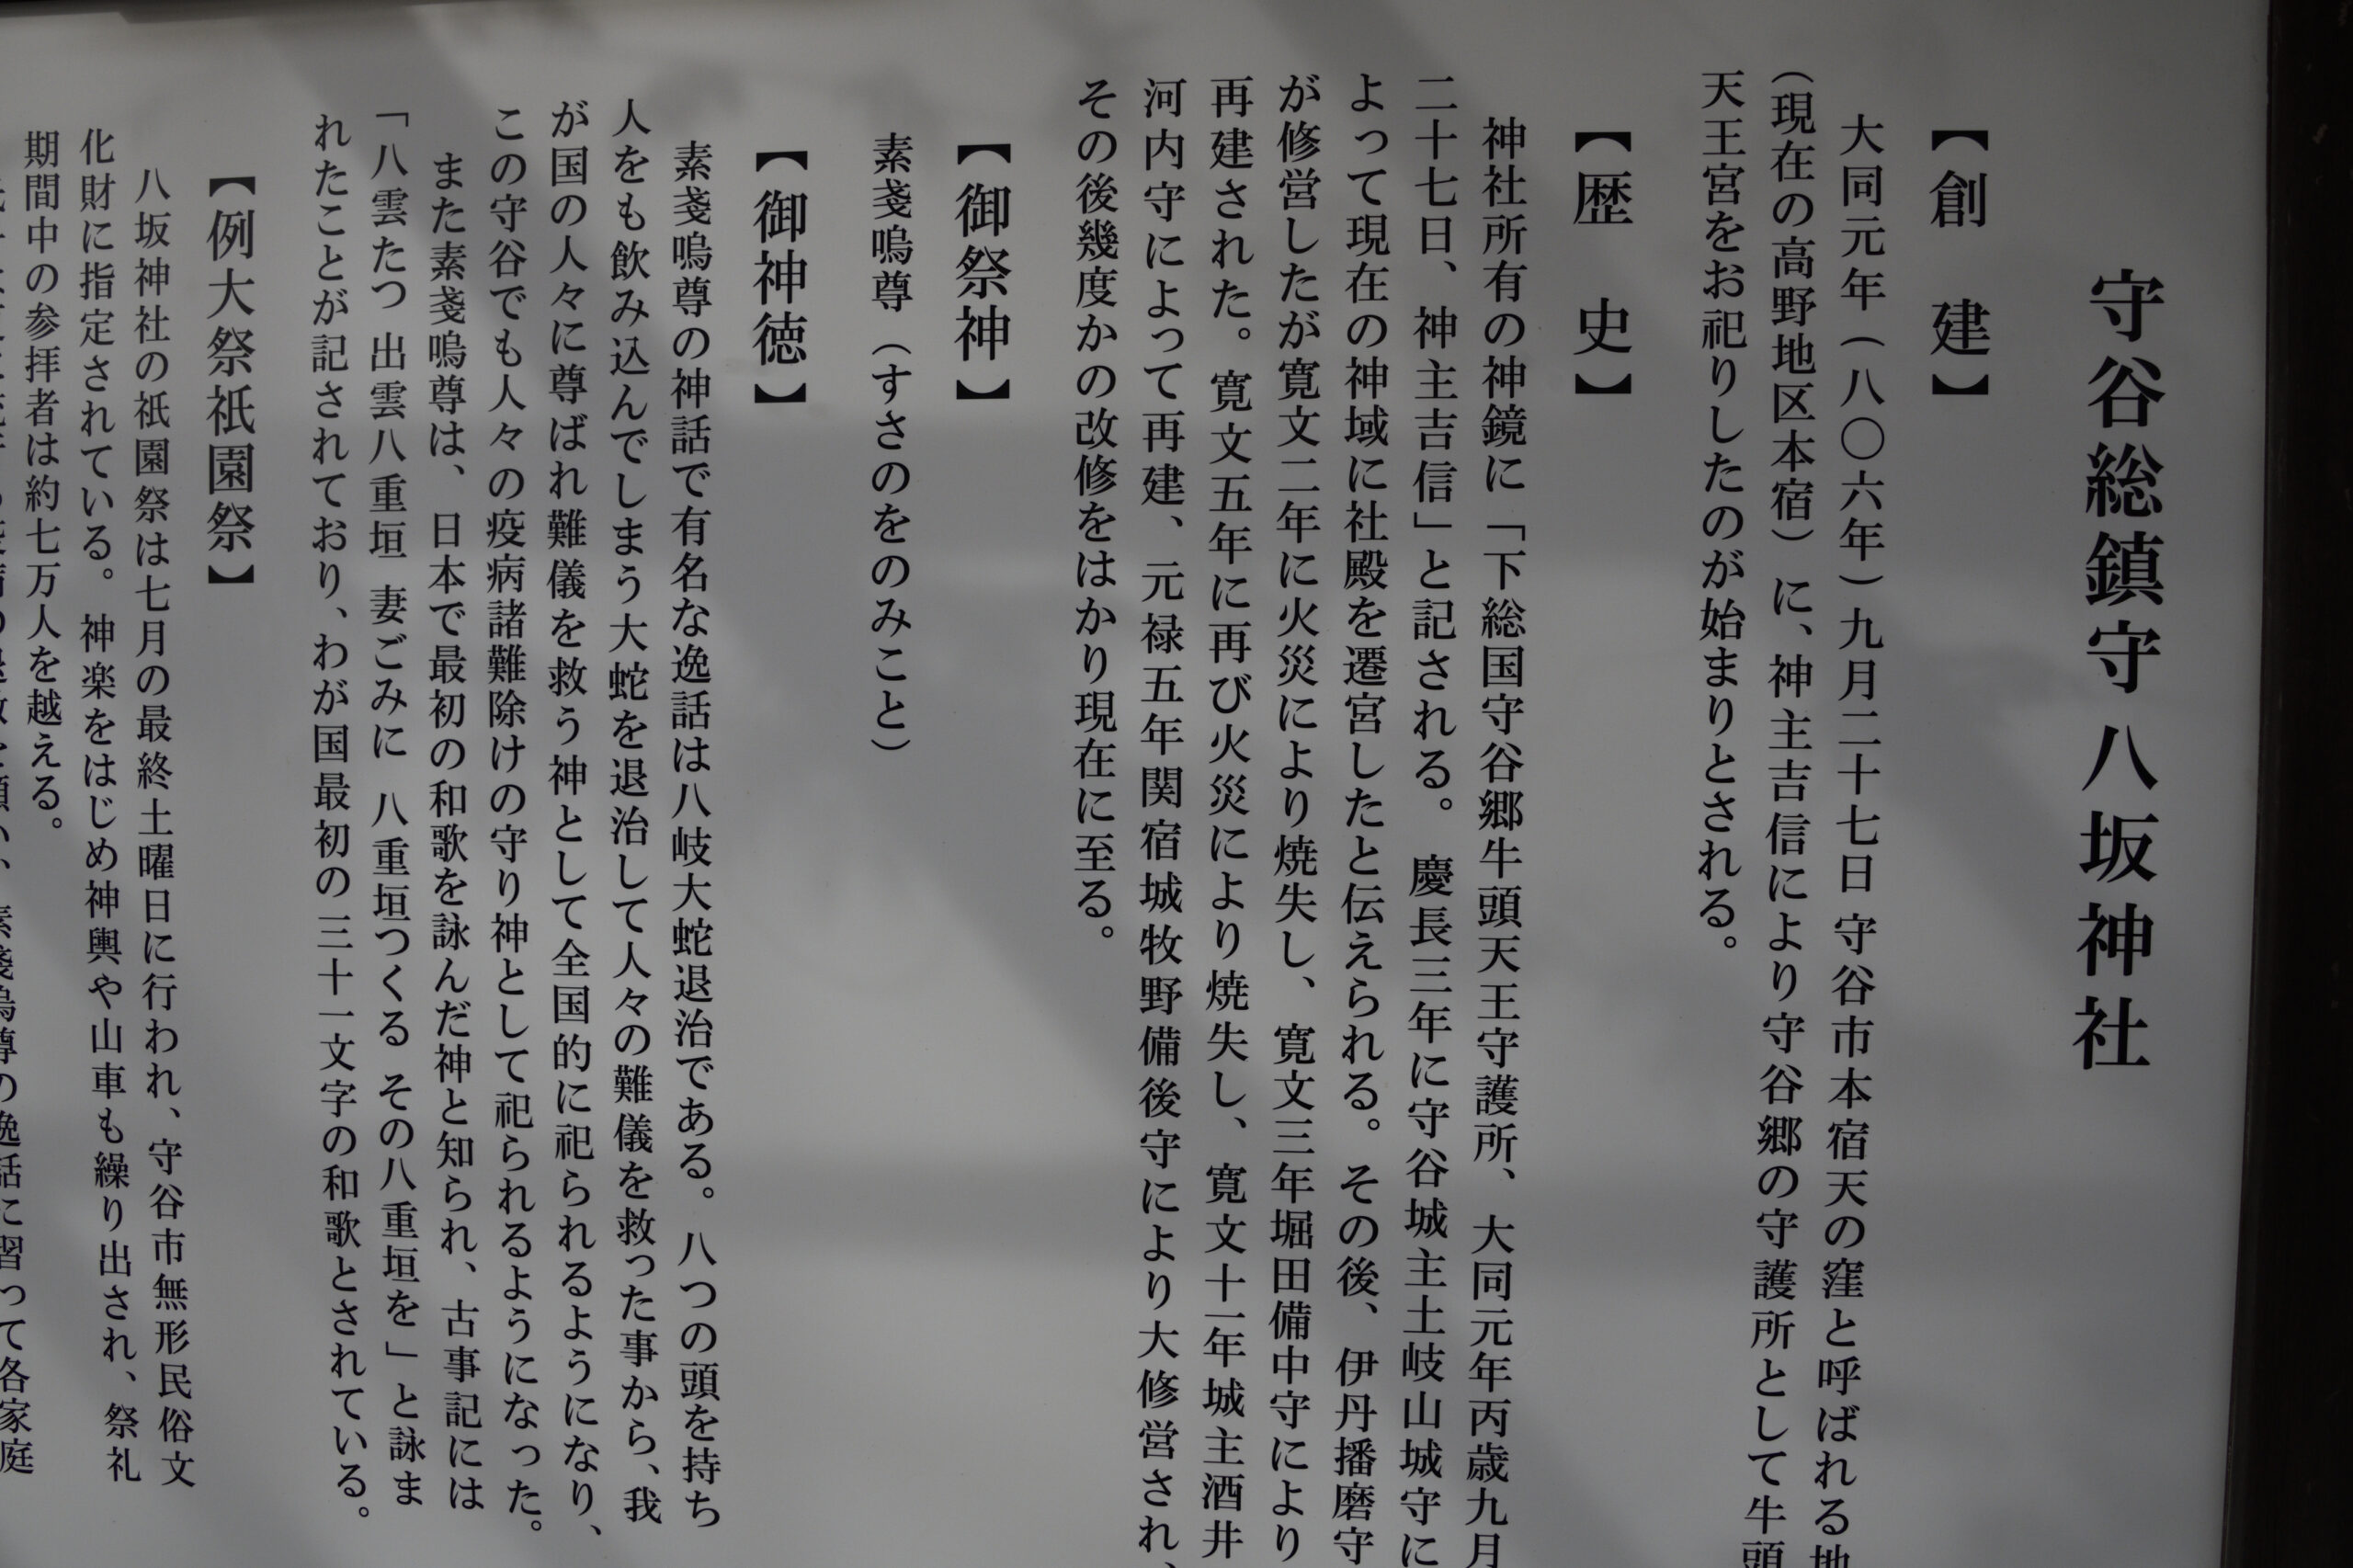 守谷総鎮守 八坂神社
【創　建】
大同元年（八〇六年）九月二十七日 守谷市本宿天の窪と呼ばれる地
（現在の高野地区本宿）に、神主吉信により守谷郷の守護所として牛頭
天王宮をお祀りしたのが始まりとされる。
【歴　史】
神社所有の神鏡に「下総国守谷郷牛頭天王守護所、大同元年丙歳九月
二十七日、神主吉信」と記される。慶長三年に守谷城主土岐山城守に
よって現在の神域に社殿を遷宮したと伝えられる。その後、伊丹播磨守
が修営したが寛文二年に火災により焼失し、寛文三年堀田備中守により
再建された。寛文五年に再び火災により焼失し、寛文十一年城主酒井
河内守によって再建、元禄五年関宿城牧野備後守により大修営され、
その後幾度かの改修をはかり現在に至る。
【御祭神】
素戔嗚尊（すさのをのみこと）
【御神徳】
素戔嗚尊の神話で有名な逸話は八岐大蛇退治である。八つの頭を持ち
人をも飲み込んでしまう大蛇を退治して人々の難儀を救った事から、我
が国の人々に尊ばれ難儀を救う神として全国的に祀られるようになり、
この守谷でも人々の疫病諸難除けの守り神として祀られるようになった。
また素戔嗚尊は、日本で最初の和歌を詠んだ神と知られ、古事記には
「八雲たつ 出雲八重垣 妻ごみに 八重垣つくる その八重垣を」と詠ま
れたことが記されており、わが国最初の三十一文字の和歌とされている。
【例大祭祇園祭】
八坂神社の祇園祭は七月の最終土曜日に行われ、守谷市無形民俗文
化財に指定されている。神楽をはじめ神輿や山車も繰り出され、祭礼
期間中の参拝者は約七万人を越える。
素戔嗚尊の逸話に習って各家庭